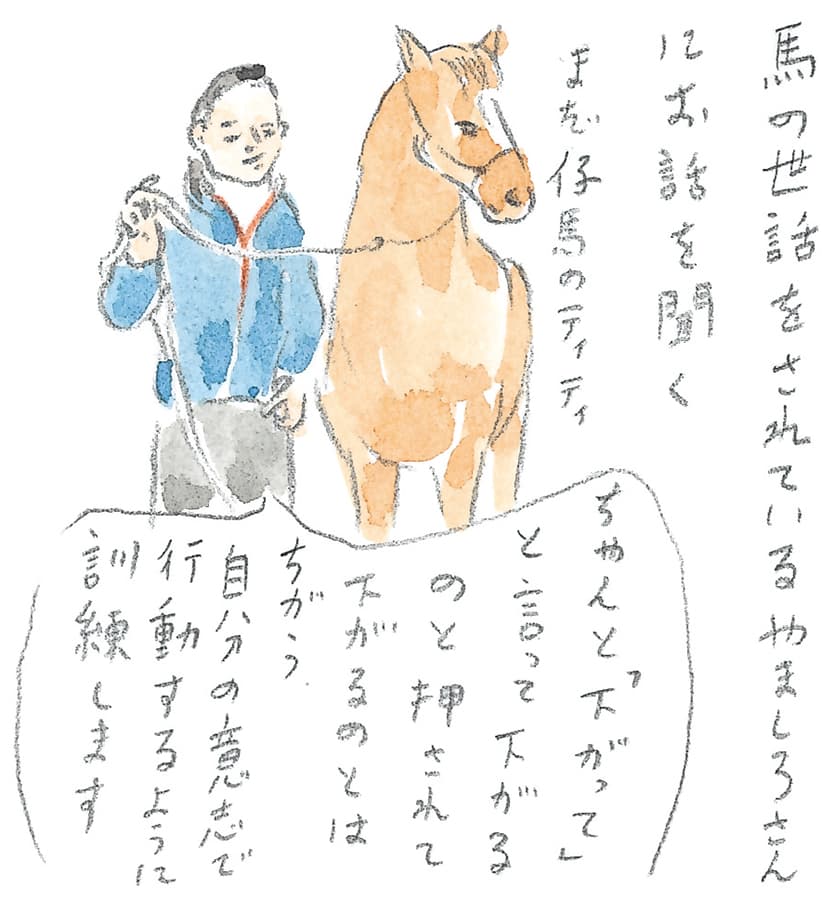 馬の世話をされているやましろさん
にお話を聞く
まず仔馬のティティ
ちゃんと「下がって」
と言って下がる
のと押されて
下がるのとは
ちがう.
自分の意志で
行動するように
訓練します